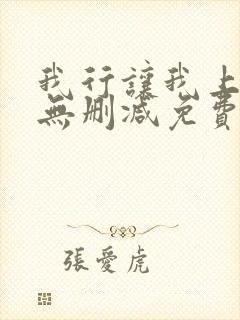 我行讓我上
無刪減免費
張愛虎